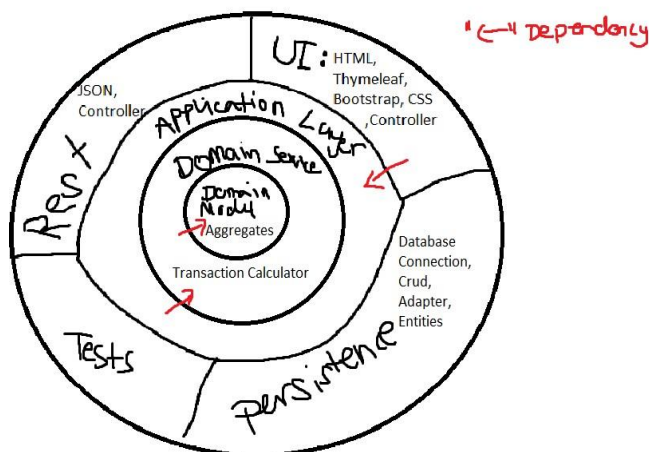 "<--" Dependency
UI:
HTML,
Thymeleaf,
Bootstrap, CSS
,Controller
JSON,
Controller
Rest
Application Layer
Domain Service
Domain
Model
Aggregates
Transaction Calculator
Database
Connection,
Crud,
Adapter,
Entities
Tests
Persistence